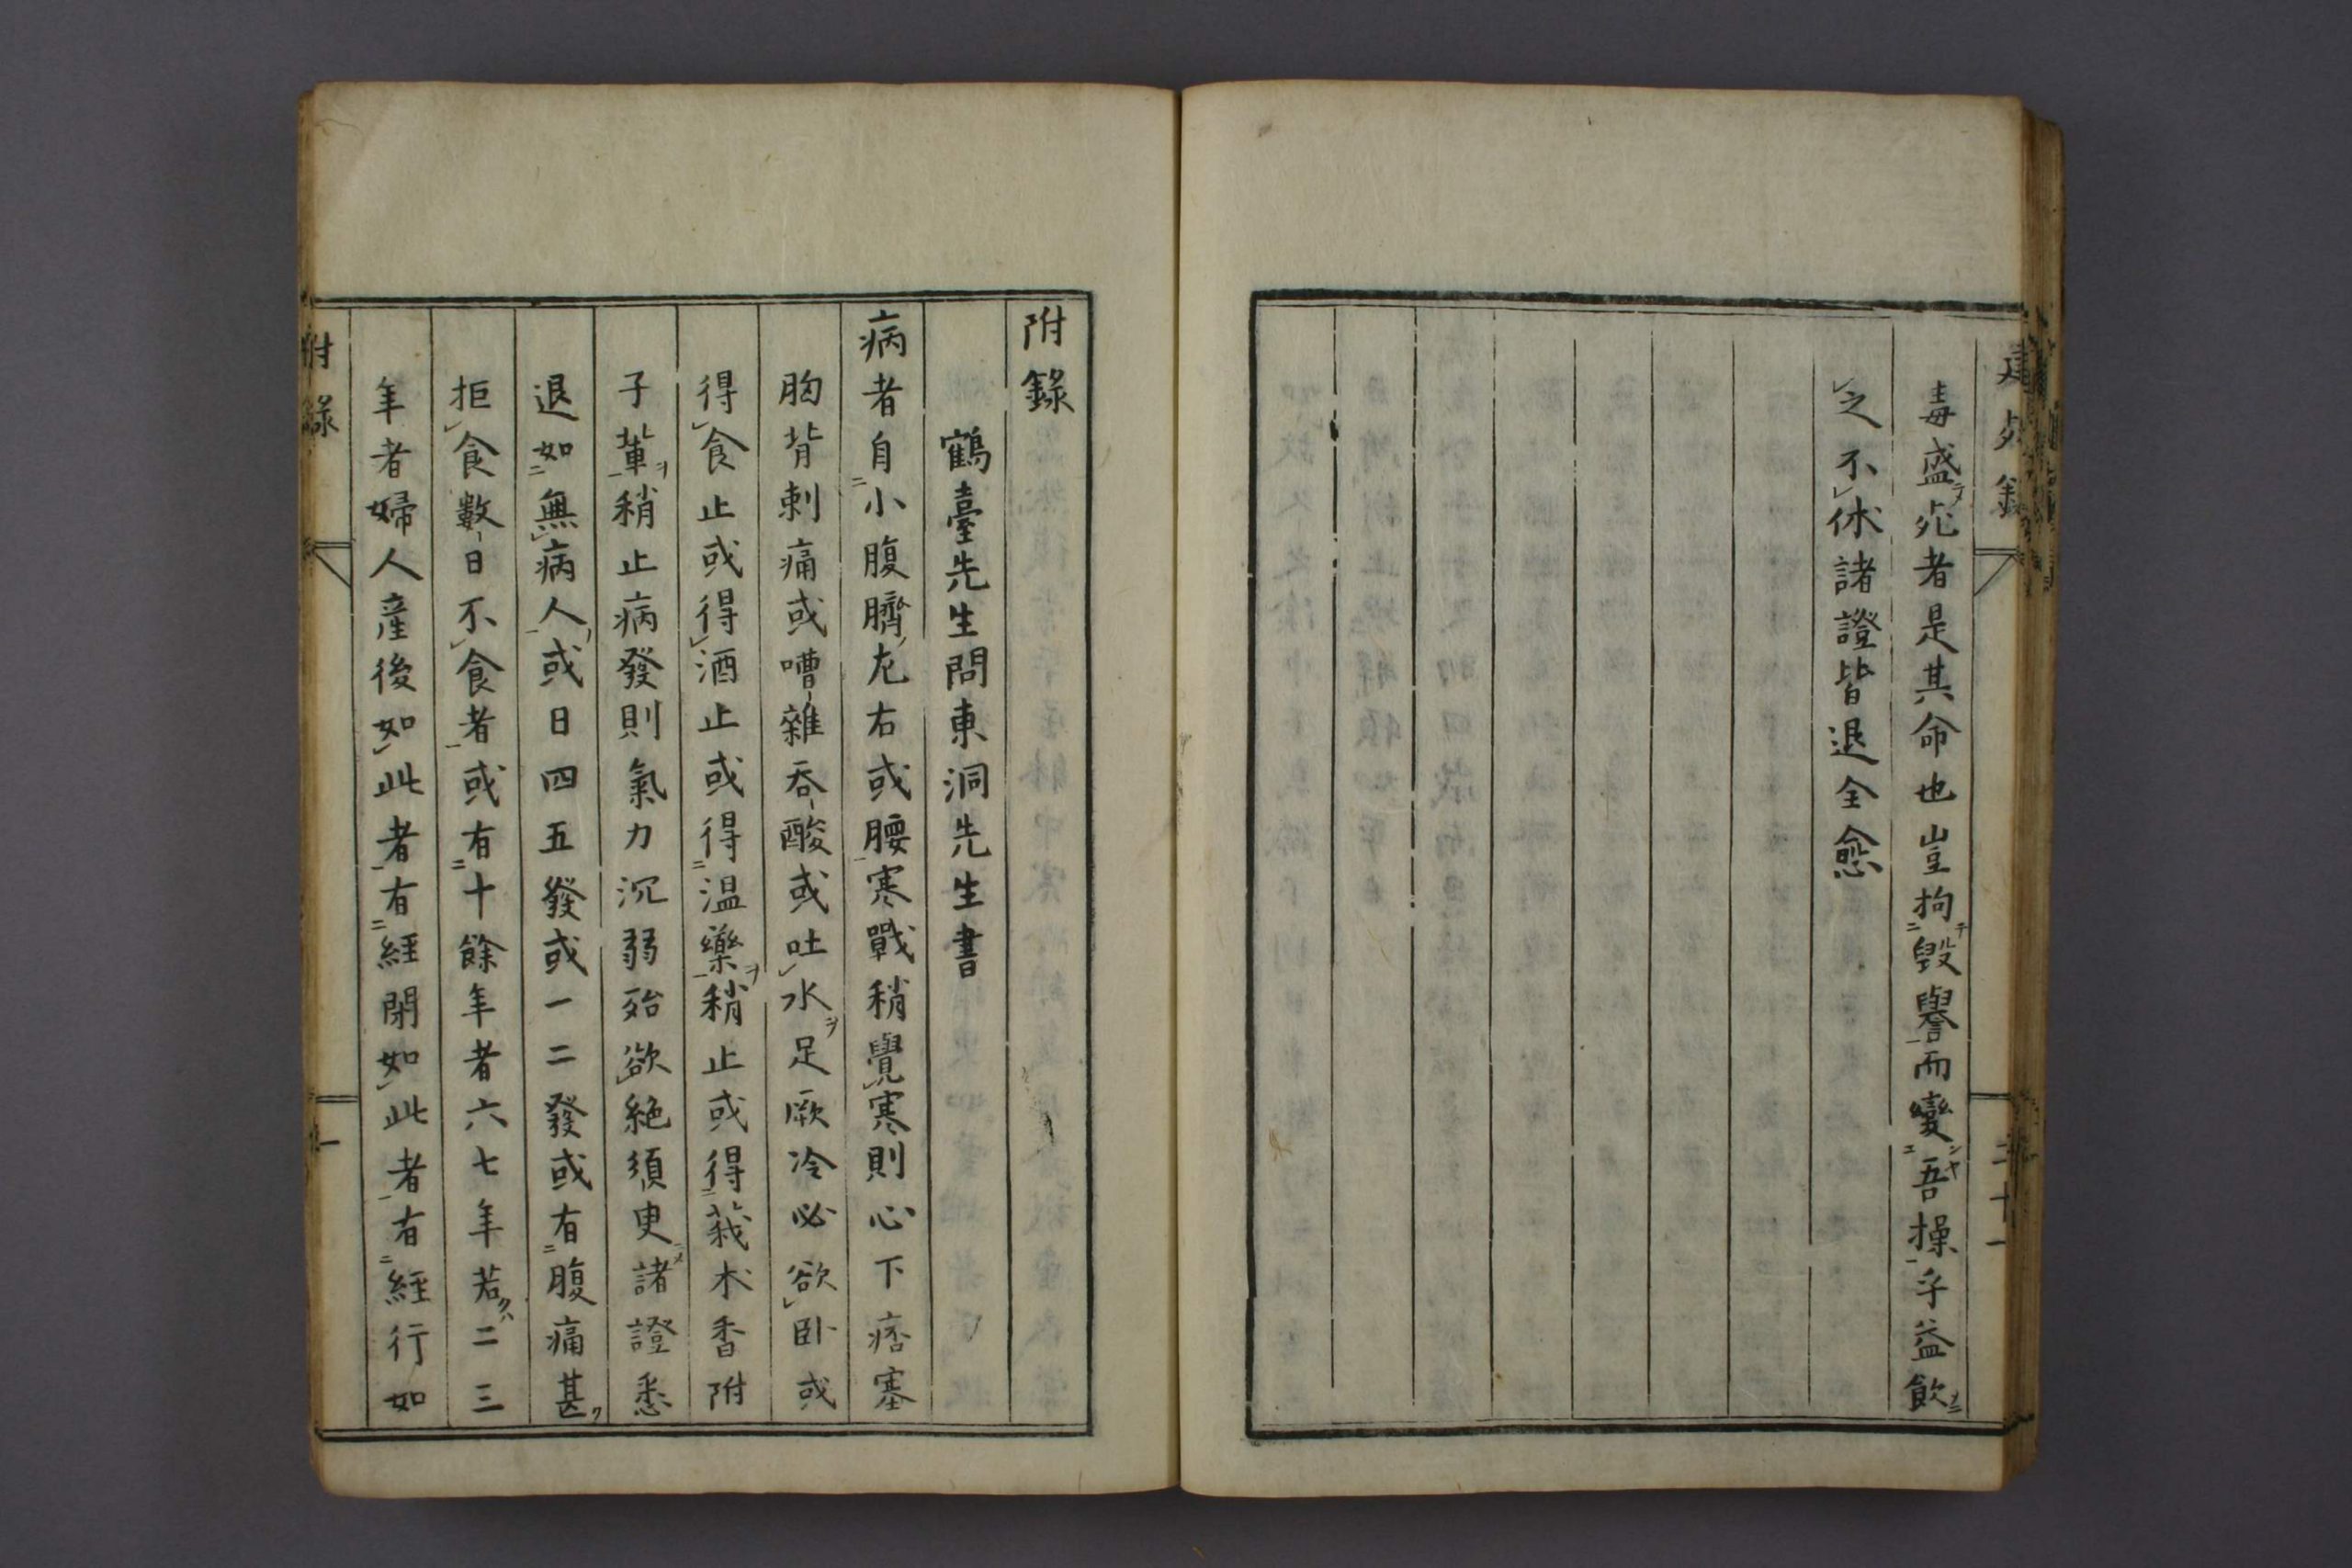 建殊錄
毒盛死者是其命也豈拘毀譽而變吾操乎益飮
之不休諸證皆退全愈
二十一
附錄
鶴臺先生問東洞先生書
病者自小腹臍左右或腰寒戰稍覺寒則心下痞塞
胸背刺痛或嘈雜吞酸或吐水足厥冷必欲臥或
得食止或得酒止或得温藥稍止或得莪朮香附
子輩稍止病發則氣力沉弱殆欲絶須臾諸證悉
退如無病人或日四五發或一二發或有腹痛甚
拒食數日不食者或有十餘年者六七年若二三
年者婦人産後如此者有經閉如此者有經行如
附錄
一